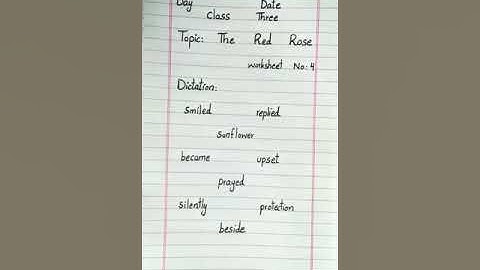 Day Date
Class Three
Topic: The Red Rose
worksheet No: 4
Dictation:
smiled replied
sunflower
became upset
prayed
silently protection
beside